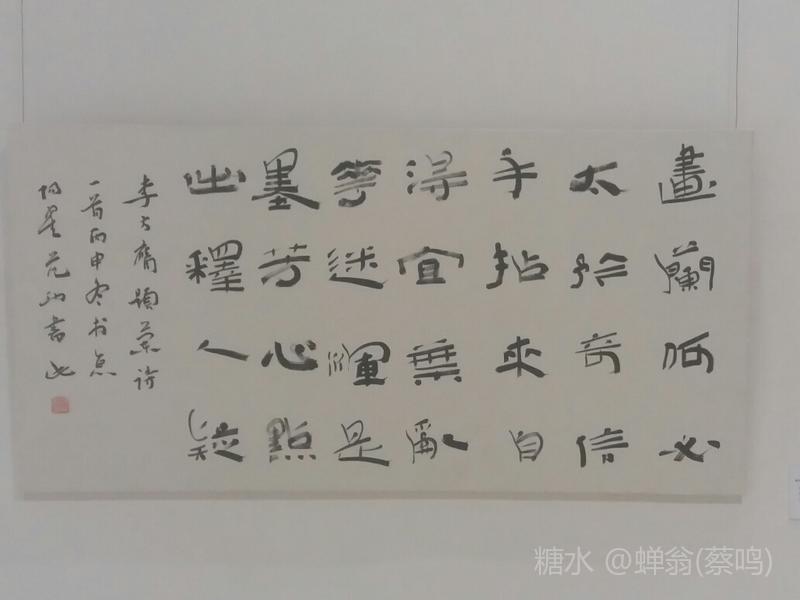 畫蘭何必
太於奇信
手拈來自
得宜葉亂
華迷渾是
墨芳心點
出釋人疑
李方膺題蘭詩
一首丙申冬於京
書
糖水 @蝉翁(蔡鸣)